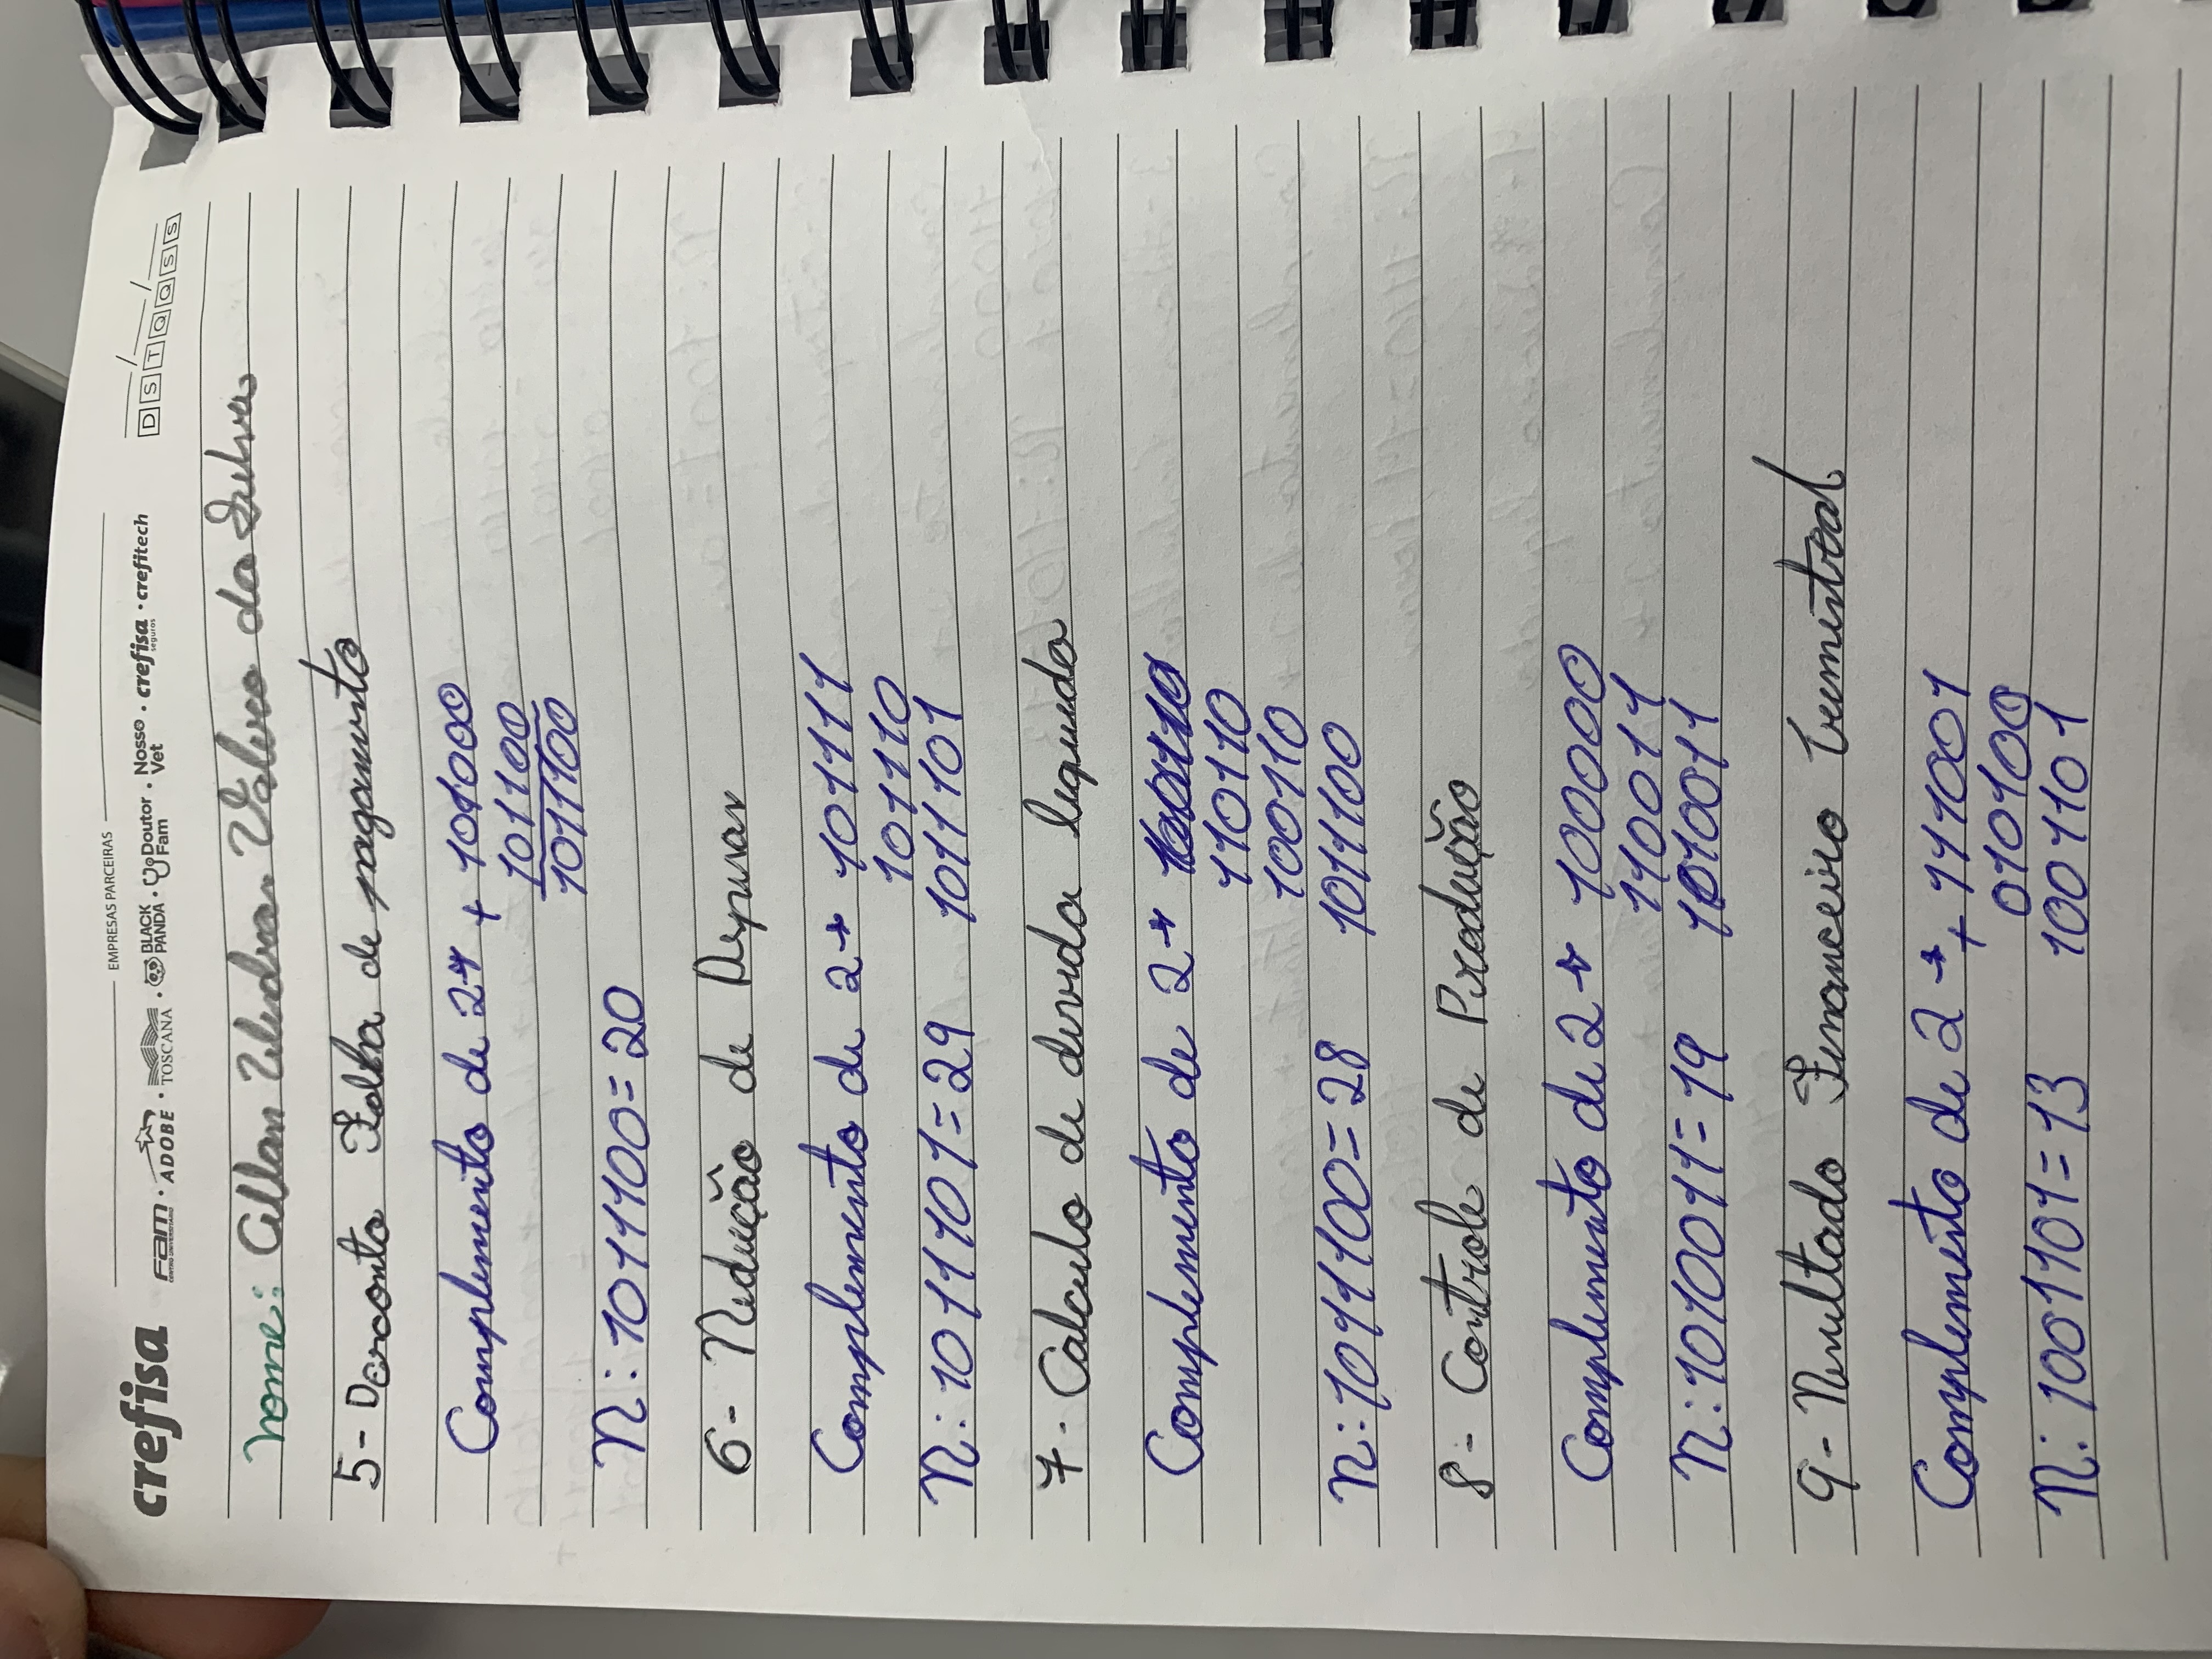 EMPRESAS PARCEIRAS
crefisa
fam CENTRO UNIVERSITÁRIO · ADOBE · TOSCANA · BLACK PANDA · Doutor Fam · Nosso Vet · crefisa seguros · crefitech
D S T Q Q S S
Nome: Allan da Silva
5- Desconto Folha de pagamento
Complemento de 2→ + 101000
101100
1011100
R: 1011100=20
6- Redução de Despesas
Complemento de 2→ 101111
101110
R: 1011101=29 1011101
7- Calculo de divida liquida
Complemento de 2→
110110
100110
R: 1011100=28 1011100
8- Controle de Produção
Complemento de 2→ 100000
110011
R: 1010011=19 1010011
9- Resultado Financeiro trimestral
Complemento de 2→ + 111001
010100
R: 1001101=13 1001101